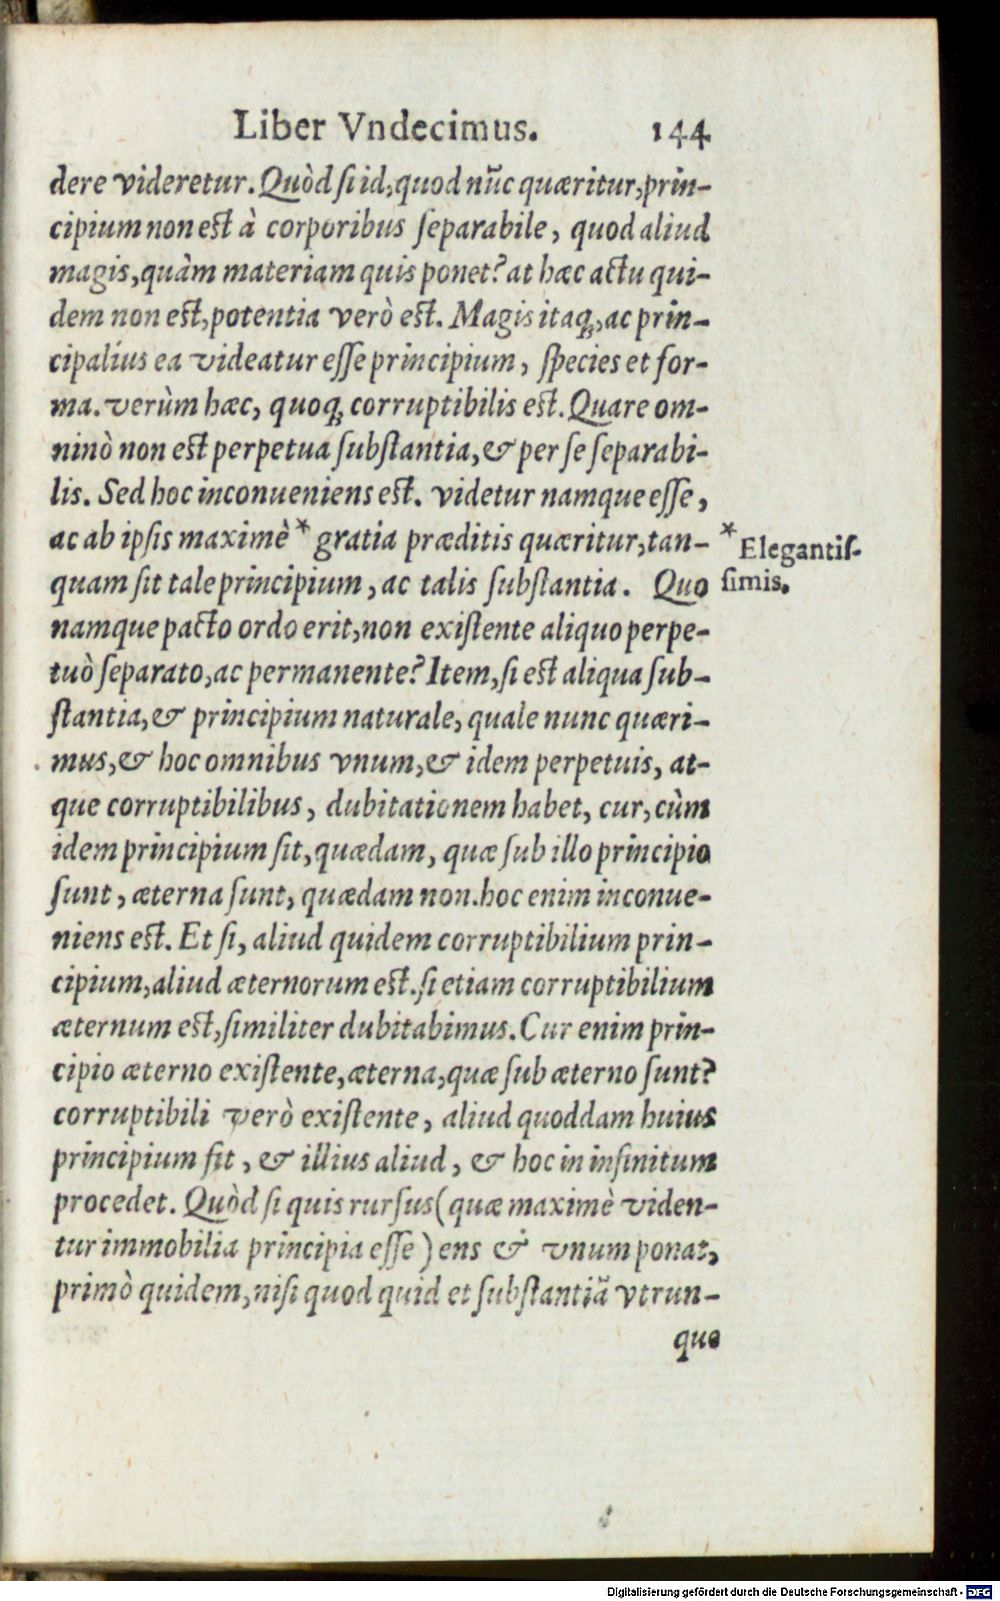 Liber Vndecimus. 144
dere videretur. Quòd si id, quod nūc quæritur, prin-
cipium non est à corporibus separabile, quod aliud
magis, quàm materiam quis ponet? at hæc actu qui-
dem non est, potentia verò est. Magis itaq;, ac prin-
cipaliús ea videatur esse principium, species et for-
ma. verùm hæc, quoq; corruptibilis est. Quare om-
ninò non est perpetua substantia, & per se separabi-
lis. Sed hoc inconueniens est. videtur namque esse,
ac ab ipsis maximè * gratia præditis quæritur, tan-
* Elegantis-
quam sit tale principium, ac talis substantia. Quo
simis.
namque pacto ordo erit, non existente aliquo perpe-
tuò separato, ac permanente? Item, si est aliqua sub-
stantia, & principium naturale, quale nunc quæri-
mus, & hoc omnibus vnum, & idem perpetuis, at-
que corruptibilibus, dubitationem habet, cur, cùm
idem principium sit, quædam, quæ sub illo principio
sunt, æterna sunt, quædam non. hoc enim inconue-
niens est. Et si, aliud quidem corruptibilium prin-
cipium, aliud æternorum est. si etiam corruptibilium
æternum est, similiter dubitabimus. Cur enim prin-
cipio æterno existente, æterna, quæ sub æterno sunt?
corruptibili verò existente, aliud quoddam huius
principium sit, & illius aliud, & hoc in infinitum
procedet. Quòd si quis rursus (quæ maximè viden-
tur immobilia principia esse) ens & vnum ponat,
primò quidem, nisi quod quid et substantiā vtrun-
que
Digitalisierung gefördert durch die Deutsche Forschungsgemeinschaft - DFG